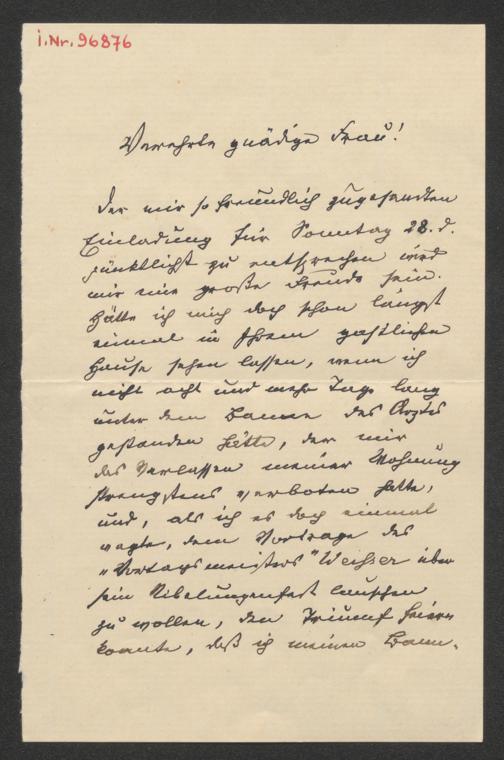 I.Nr. 96876
Verehrte gnädige Frau!
Der mir so freundlich zugesandten
Einladung für Sonntag 28. d.
pünktlichst zu entsprechen wird
mir eine große Freude sein.
Hätte ich mich doch schon längst
einmal in Ihrem gastlichen
Hause sehen lassen, wenn ich
nicht acht und mehr Tage lang
unter dem Banne des Arztes
gestanden hätte, der mir
das Verlassen meiner Wohnung
strengstens verboten hatte,
und, als ich es doch einmal
wagte, dem Vortrage des
"Vortragsmeisters" Weihser über
sein Nibelungenfest lauschen
zu wollen, den Triumf feiern
konnte, daß ich meinen Bann-